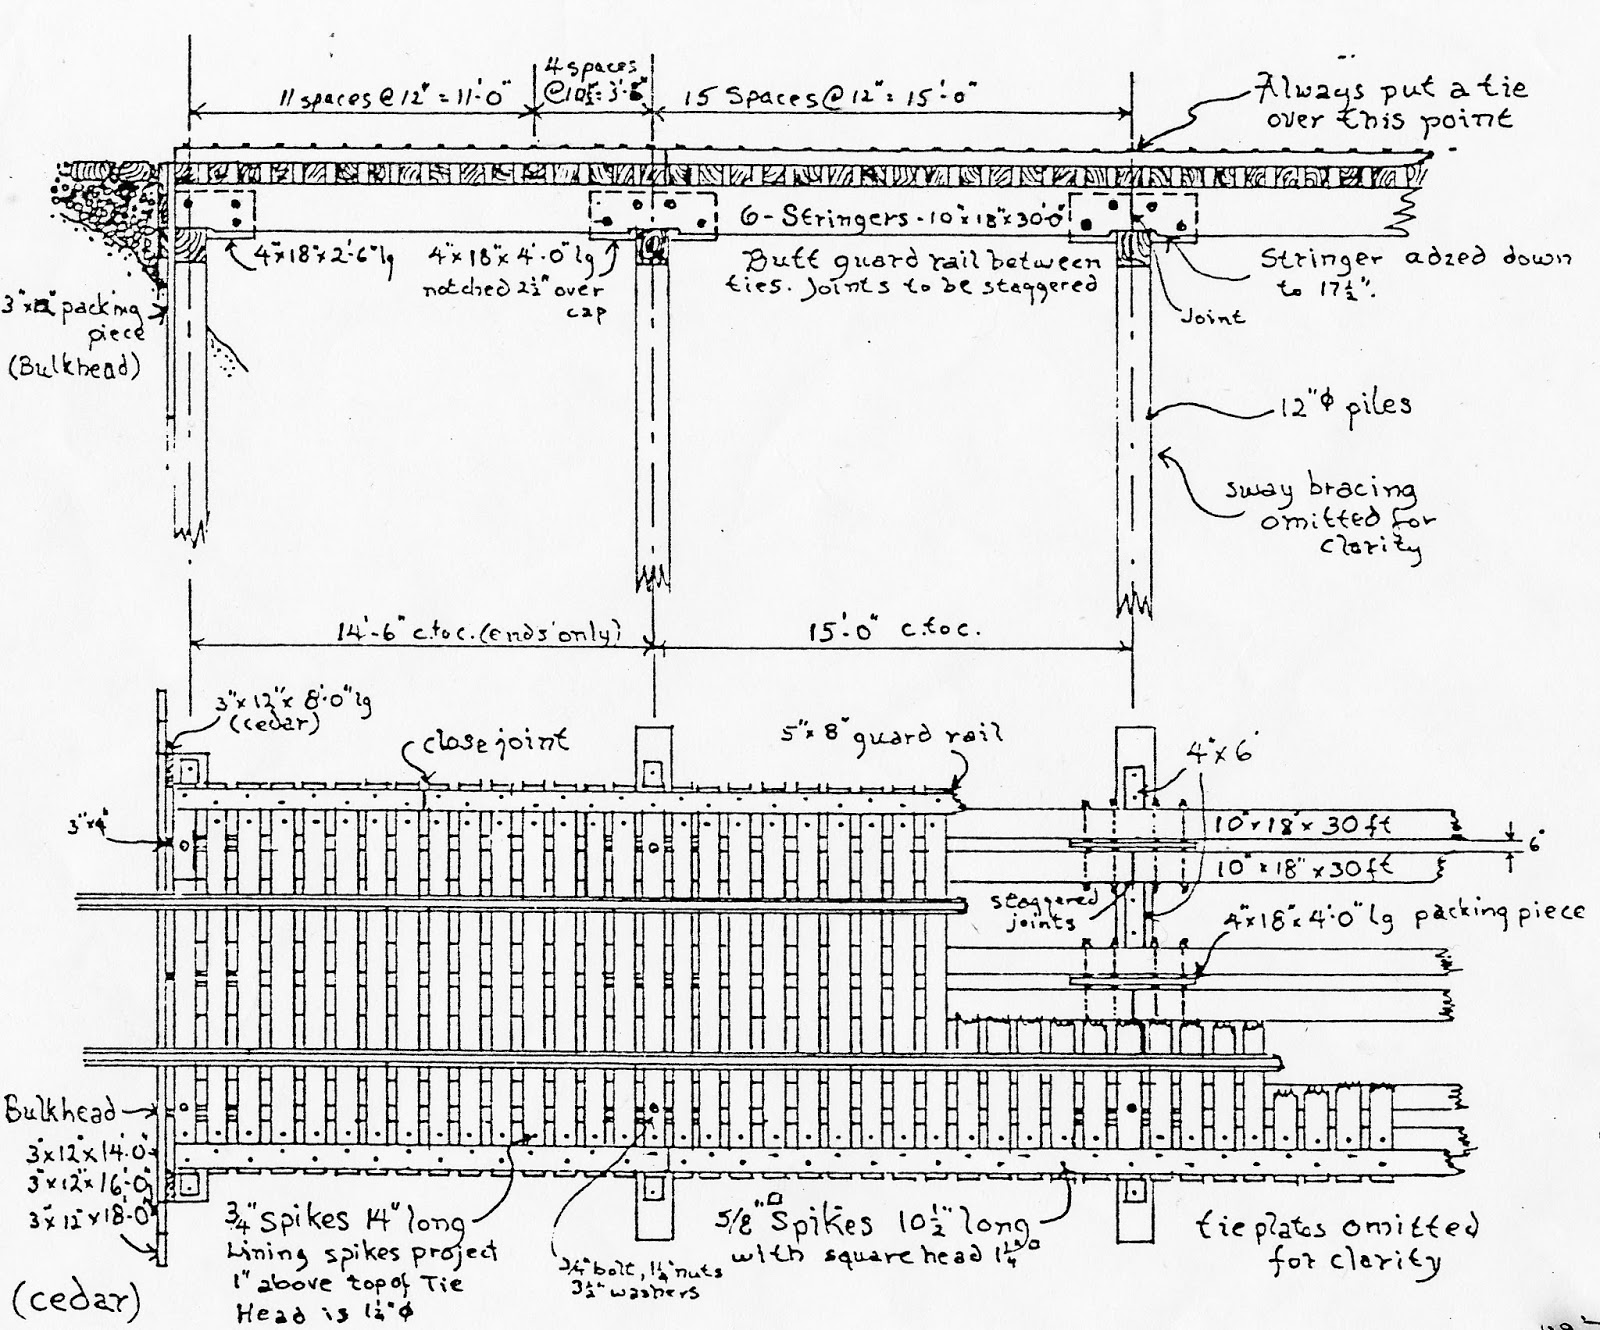 11 spaces @ 12" = 11'-0"
4 spaces
@ 10½" = 3'-6"
15 Spaces @ 12" = 15'-0"
Always put a tie
over this point
6 - Stringers - 10"x18"x30'0"
4"x18"x2'-6" lg
4"x18"x4'-0" lg
notched 2½" over
cap
Butt guard rail between
ties. Joints to be staggered
Stringer adzed down
to 17½".
Joint
packing
piece
(Bulkhead)
12"ϕ piles
sway bracing
omitted for
clarity
14'-6" c.to c. (ends only)
15'-0" c.to c.
3"x12"x8'-0" lg
(cedar)
close joint
5"x8" guard rail
4"x6"
3"x4"
10"x18"x30ft
6"
10"x18"x30ft
staggered
joints
4"x18"x4'-0" lg packing piece
Bulkhead
3"x12"x14'-0"
3"x12"x16'-0"
3"x12"x18'-0"
(cedar)
3/4" Spikes 14" long
Lining spikes project
1" above top of Tie
Head is 1¼"ϕ
3/4" bolt, 1¼" nuts
3½" washers
5/8"□ Spikes 10½" long
with square head 1¼"□
tie plates omitted
for clarity